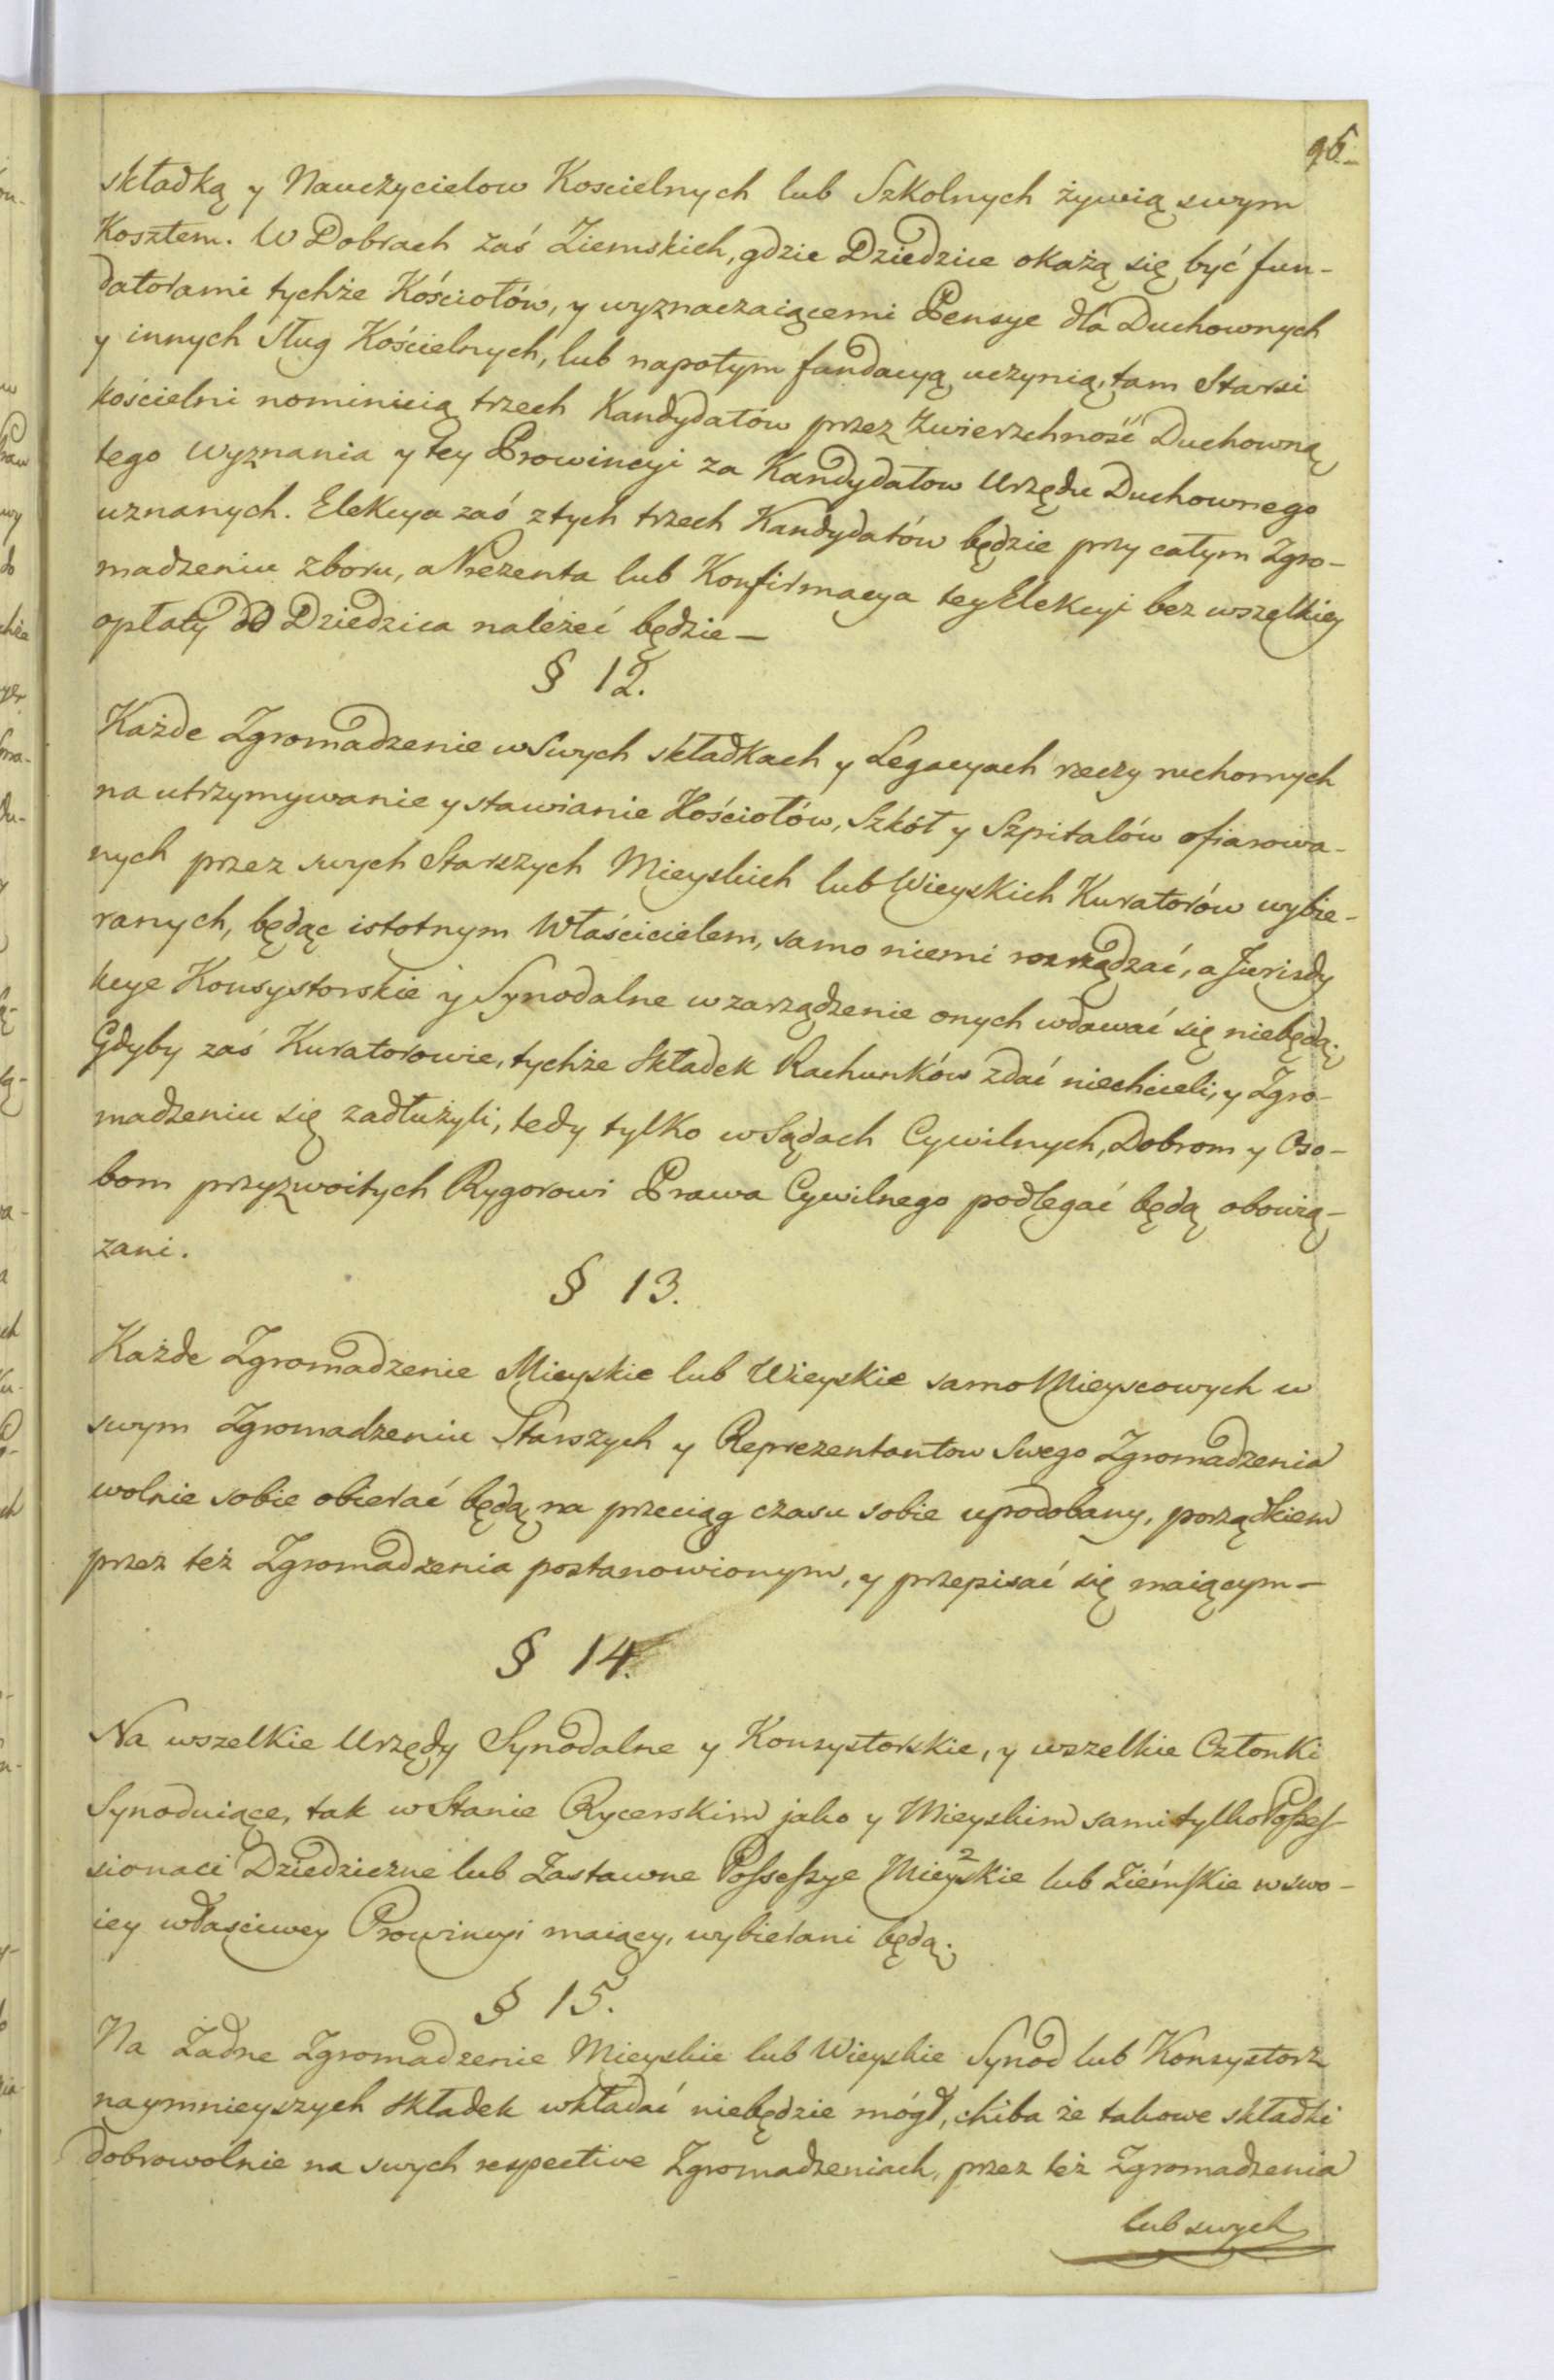 95.
składką y Nauczycielow Koscielnych lub Szkolnych żywią swym
Kosztem. W Dobrach zaś Ziemskich, gdzie Dziedzice okażą się być fun-
datorami tychże Kościołów, y wyznaczaiącemi Pensye dla Duchownych
y innych Sług Kościelnych, lub napotym fundacyą uczynią, tam Starsi
kościelni nominuią trzech Kandydatów przez Zwierzchność Duchowną
tego Wyznania y tey Prowincyi za Kandydatow Urzędu Duchownego
uznanych. Elekcya zaś z tych trzech Kandydatów będzie przy całym Zgro-
madzeniu zboru, a Prezenta lub Konfirmacya tey Elekcyi bez wszelkiey
opłaty do Dziedzica należeć będzie —
§ 12.
Każde Zgromadzenie w Swych składkach y Legacyach rzeczy ruchomych
na utrzymywanie y stawianie Kościołów, Szkół y Szpitalów ofiarowa-
nych przez swych Starszych Mieyskich lub Wieyskich Kuratorów wybie-
ranych, będąc istotnym Właścicielem, samo niemi rozrządzać, a Jurisdy
kcye Konsystorskie y Synodalne w zarządzenie onych wdawać się niebędą.
Gdyby zaś Kuratorowie, tychże Składek Rachunków zdać niechcieli, y Zgro-
madzeniu się zadłużyli, tedy tylko w Sądach Cywilnych, Dobrom y Oso-
bom przyzwoitych Rygorowi Prawa Cywilnego podlegać będą obowią-
zani.
§ 13.
Każde Zgromadzenie Mieyskie lub Wieyskie samo Mieyscowych w
swym Zgromadzeniu Starszych y Reprezentantow Swego Zgromadzenia
wolnie sobie obierać będą na przeciąg czasu sobie upodobany, porządkiem
przez też Zgromadzenia postanowionym, y przepisać się maiącym —
§ 14.
Na wszelkie Urzędy Synodalne y Konsystorskie, y wszelkie Członki
Synoduiące, tak w Stanie Rycerskim jako y Mieyskim sami tylko Posses-
sionaci Dziedziczne lub Zastawne Possessye Mieyskie lub Ziemskie w swo-
iey właściwey Prowincyi maiący, wybierani będą.
§ 15.
Na Żadne Zgromadzenie Mieyskie lub Wieyskie Synod lub Konsystorz
naymnieyszych składek wkładać niebędzie mógł, chiba że takowe składki
dobrowolnie na swych respective Zgromadzeniach, przez też Zgromadzenia
lub swych